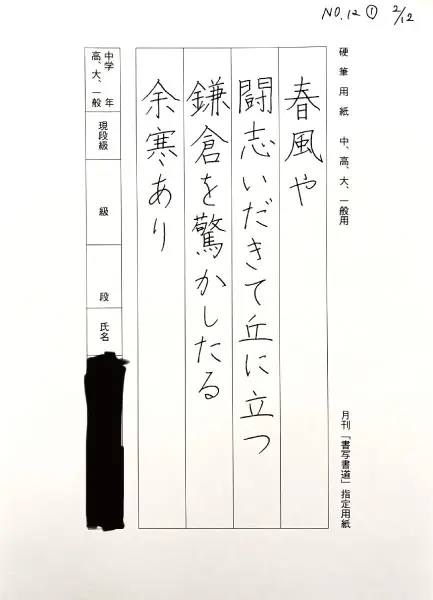 NO.12 ① 2/12
硬筆用紙 中、高、大、一般用
月刊「書写書道」指定用紙
春風や
闘志いだきて丘に立つ
鎌倉を驚かしたる
余寒あり
中学 年
高、大、一般
現段級
級
段
氏名